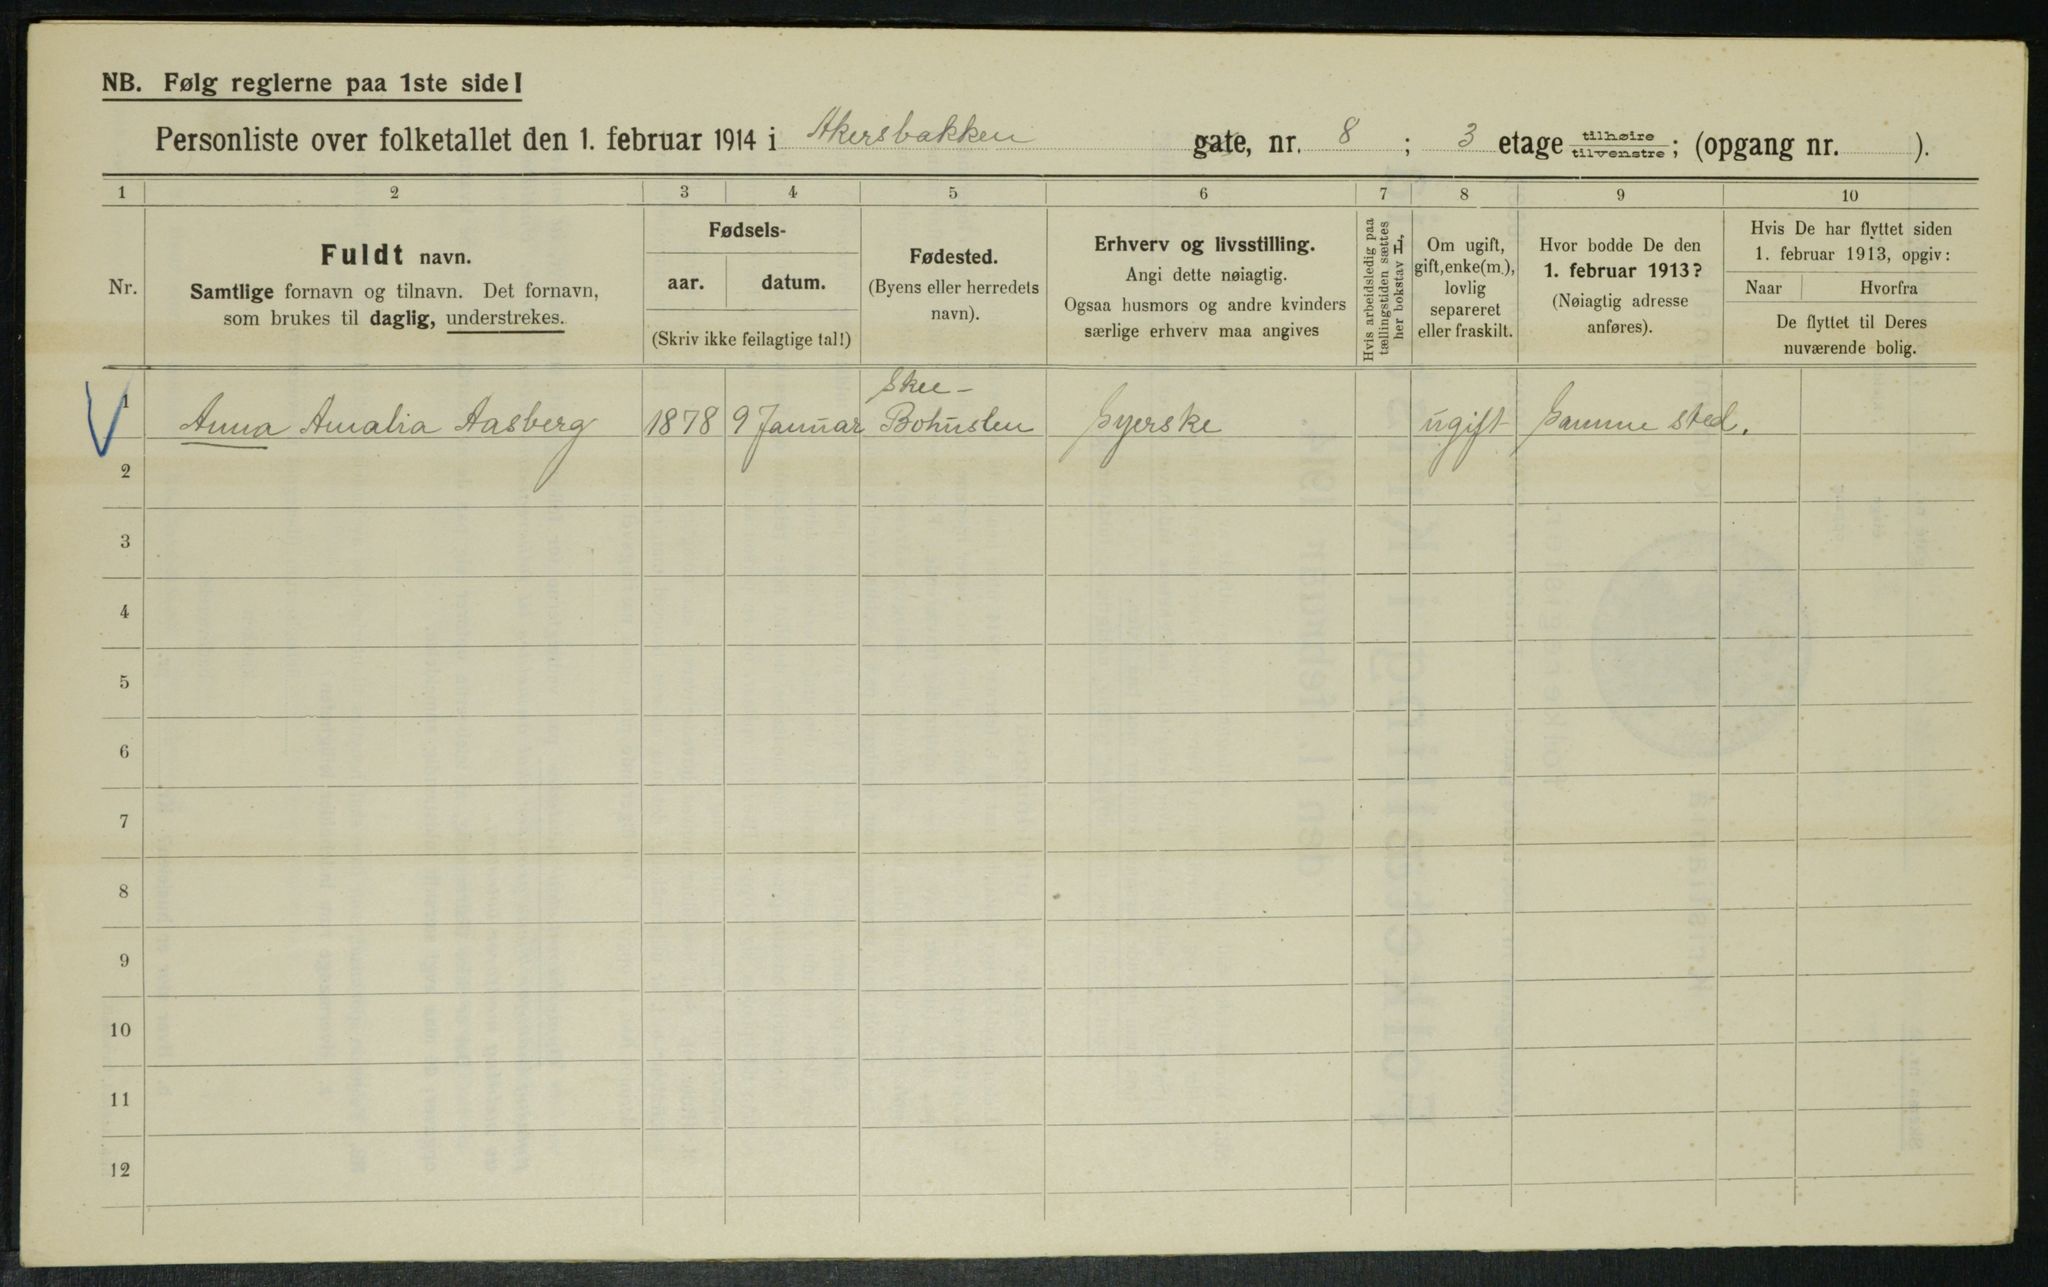 NB. Følg reglerne paa 1ste side!
Personliste over folketallet den 1. februar 1914 i Akersbakken gate, nr. 8 ; 3 etage tilhøire tilvenstre; (opgang nr. ).
1 2 3 4 5 6 7 8 9 10
Nr.
Fuldt navn.
Samtlige fornavn og tilnavn. Det fornavn,
som brukes til daglig, understrekes.
Fødsels-
aar. datum.
(Skriv ikke feilagtige tal!)
Fødested.
(Byens eller herredets
navn).
Erhverv og livsstilling.
Angi dette nøiagtig.
Ogsaa husmors og andre kvinders
særlige erhverv maa angives
Hvis arbeidsledig paa
tællingstiden sættes
her bokstav L,
Om ugift,
gift, enke(m.),
lovlig
separeret
eller fraskilt.
Hvor bodde De den
1. februar 1913?
(Nøiagtig adresse
anføres).
Hvis De har flyttet siden
1. februar 1913, opgiv:
Naar Hvorfra
De flyttet til Deres
nuværende bolig.
Skee-
1 Anna Amalia Aasberg 1878 9 Januar Bohuslen Syerske ugift Samme sted.
2
3
4
5
6
7
8
9
10
11
12